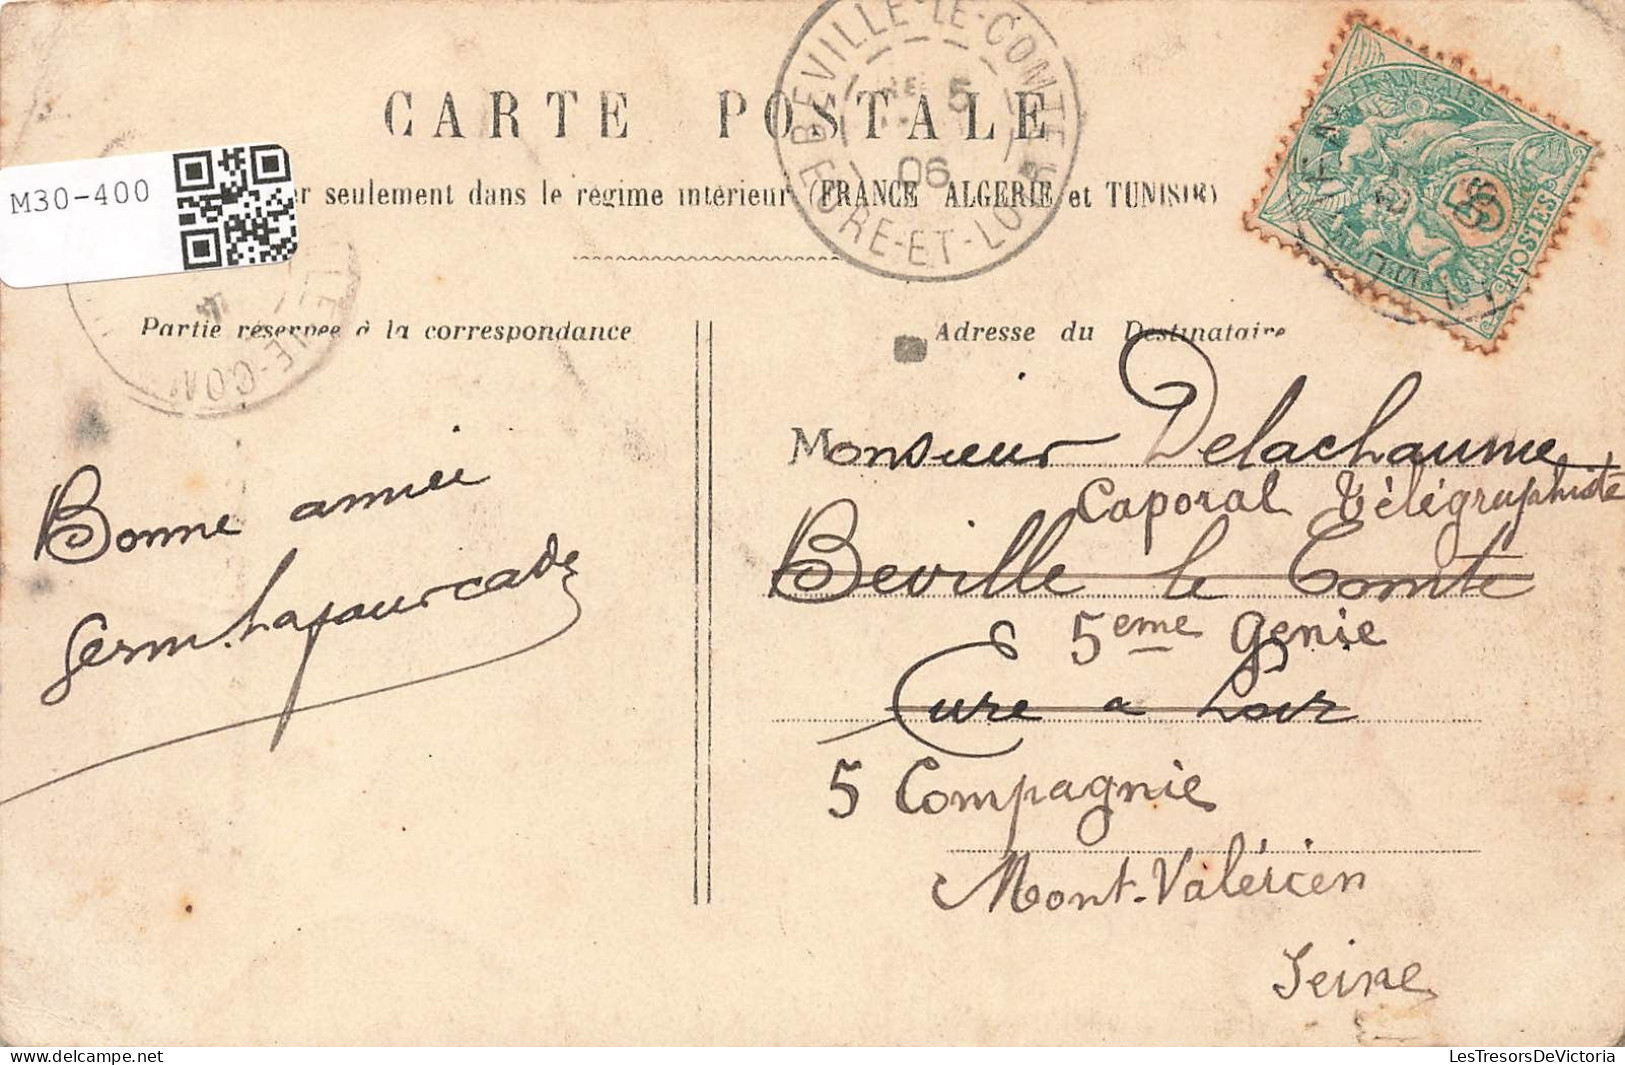 CARTE POSTALE
M30-400
seulement dans le régime intérieur (FRANCE ALGERIE et TUNISIE)
BEVILLE-LE-COMTE
5
06
EURE-ET-LOIR
FRANÇAISE
5
POSTES
LE-COM
Partie réservée à la correspondance
Adresse du Destinataire
Bonne année
Germ. Lafourcade
Monsieur Delachaume
Caporal Télégraphiste
Beville le Comte
5eme Génie
Eure & Loir
5 Compagnie
Mont-Valérien
Seine
LesTresorsDeVictoria